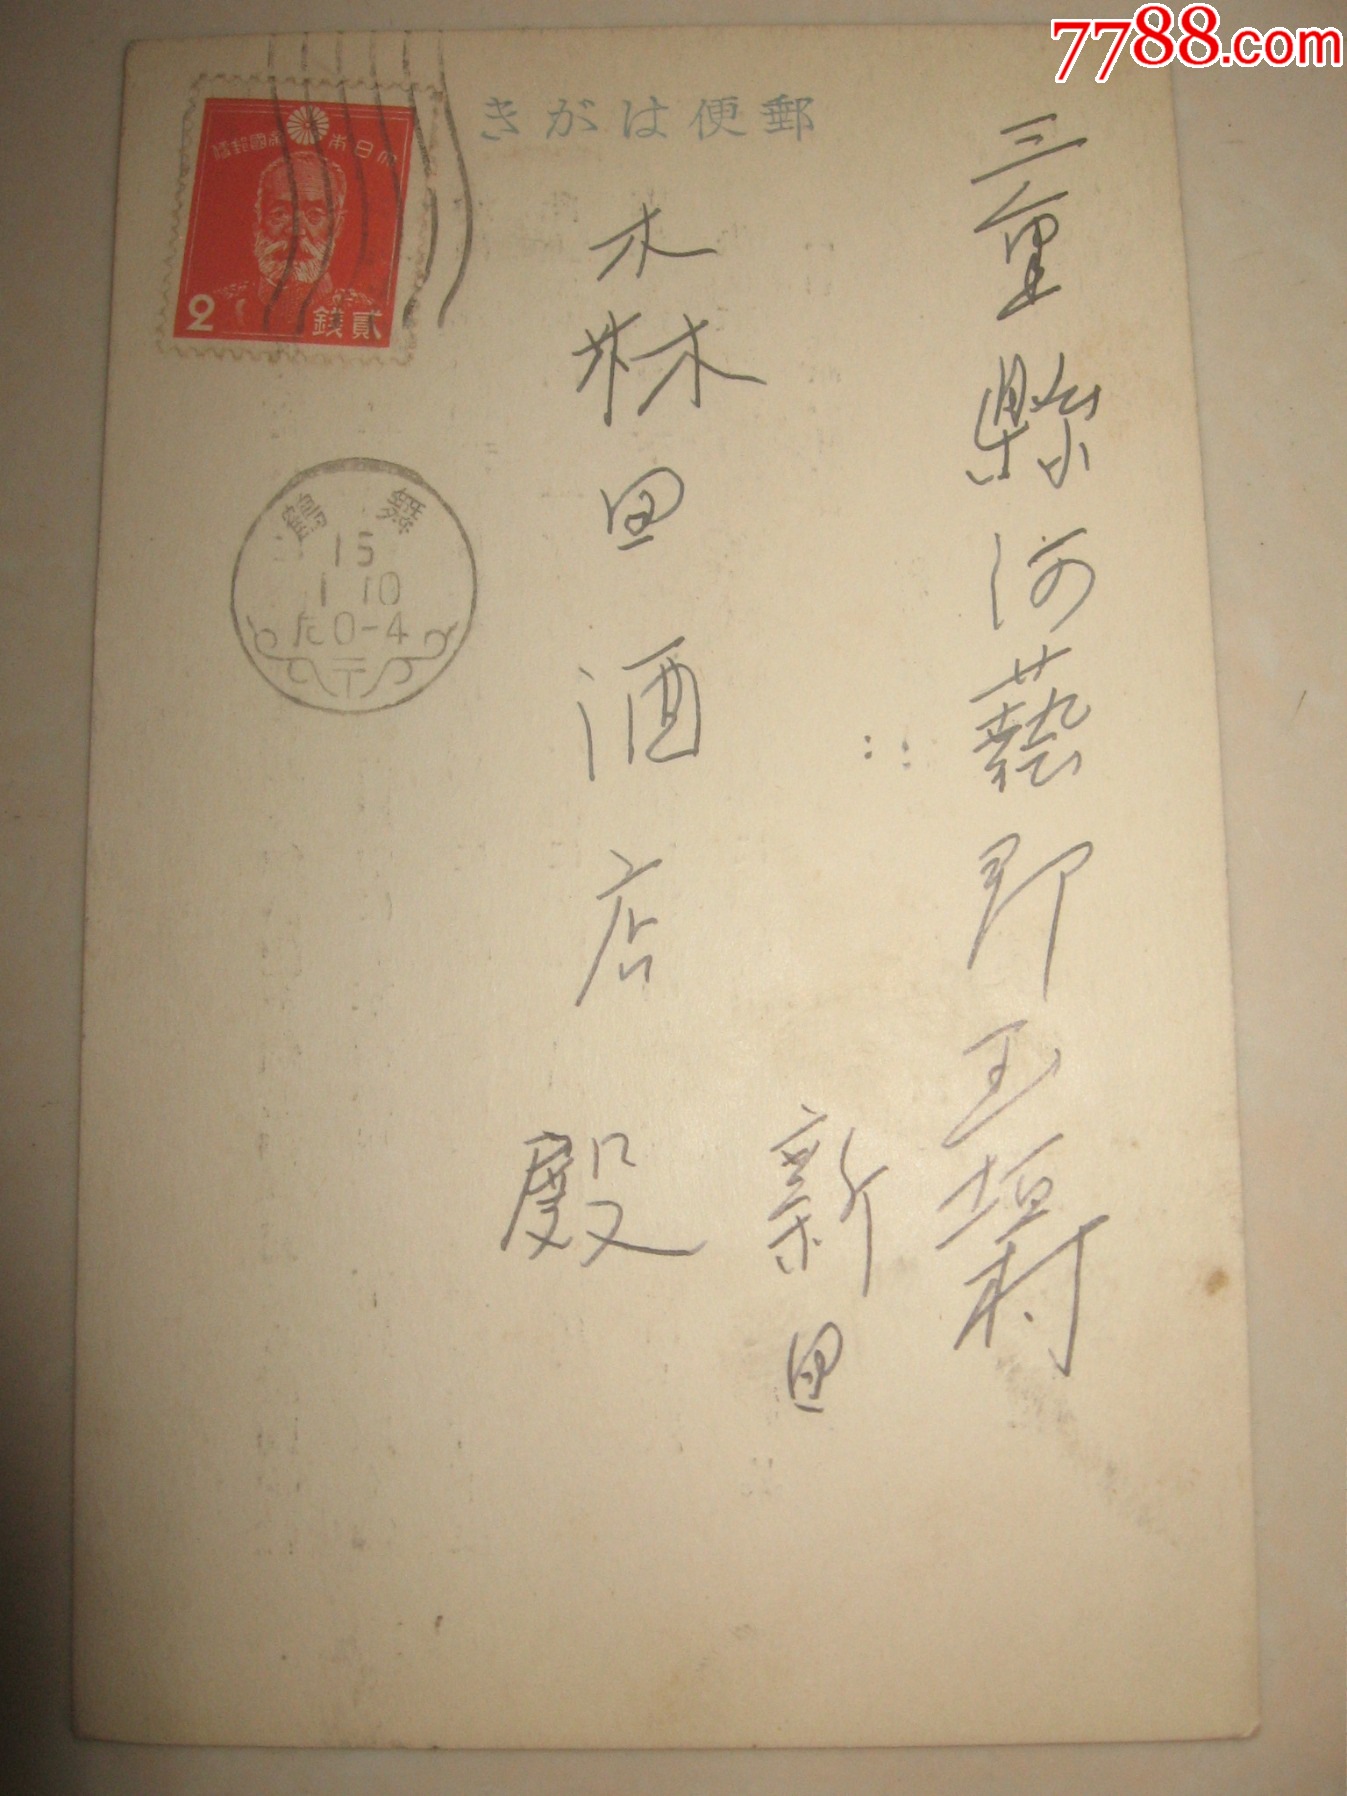 7788.com
郵便はがき
大日本帝國郵便
2
貳銭
舞鶴
15
1 10
后0-4
三重縣河藝郡玉垣村
新田
森田酒店
殿